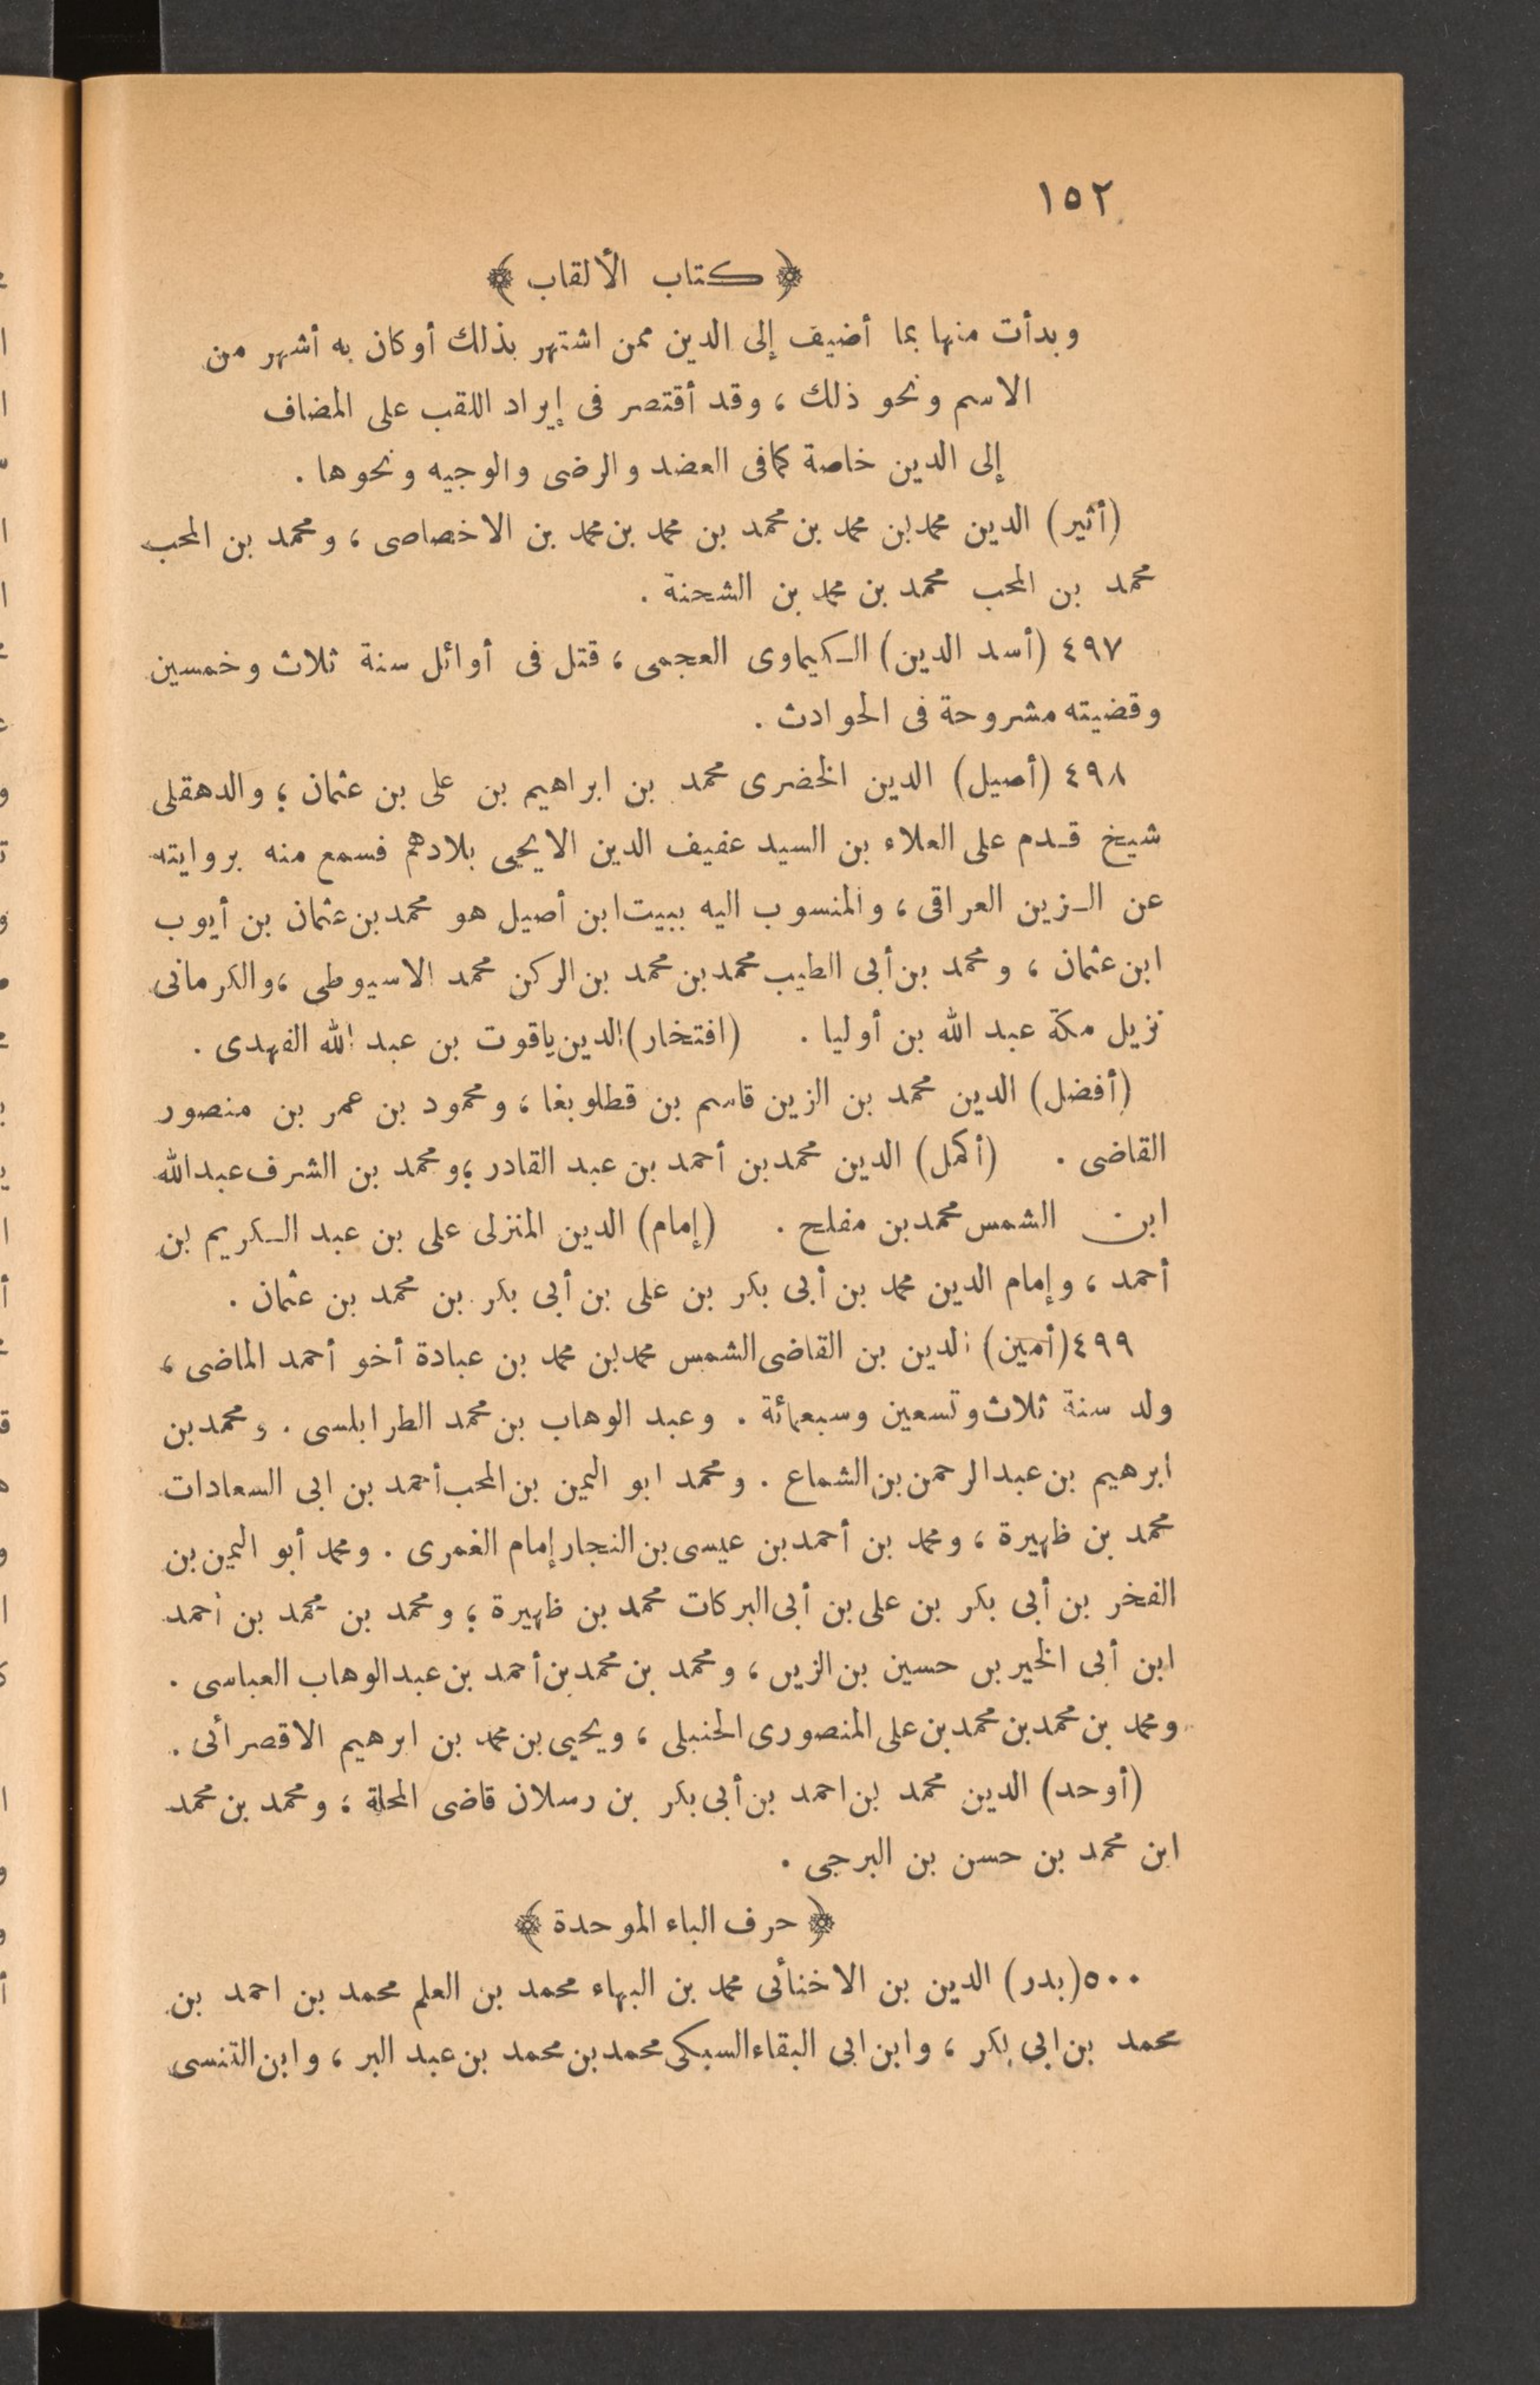 ١٥٢
﴿ كتاب الألقاب ﴾
وبدأت منها بما أضيف إلى الدين ممن اشتهر بذلك أو كان به أشهر من
الاسم ونحو ذلك ، وقد أقتصر فى إيراد اللقب على المضاف
إلى الدين خاصة كمافى العضد والرضى والوجيه ونحوها .
(أثير) الدين محمد بن محمد بن محمد بن محمد بن محمد بن الاخصاصى ، ومحمد بن المحب
محمد بن المحب محمد بن محمد بن الشحنة .
٤٩٧ (أسد الدين) الـكيماوى العجمى ، قتل فى أوائل سنة ثلاث وخمسين
وقضيته مشروحة فى الحوادث .
٤٩٨ (أصيل) الدين الخضرى محمد بن ابراهيم بن على بن عثمان ؛ والدهقلى
شيخ قـدم على العلاء بن السيد عفيف الدين الايجى بلادهم فسمع منه بروايته
عن الـزين العراقى ، والمنسوب اليه ببيت ابن أصيل هو محمد بن عثمان بن أيوب
ابن عثمان ، ومحمد بن أبى الطيب محمد بن محمد بن الركن محمد الاسيوطى ، والكرمانى
نزيل مكة عبد الله بن أوليا . (افتخار) الدين ياقوت بن عبد الله الفهدى .
(أفضل) الدين محمد بن الزين قاسم بن قطلوبغا ، ومحمود بن عمر بن منصور
القاضى . (أكمل) الدين محمد بن أحمد بن عبد القادر ؛ ومحمد بن الشرف عبد الله
ابن الشمس محمد بن مفلح . (إمام) الدين المنزلى على بن عبد الـكريم بن
أحمد ، وإمام الدين محمد بن أبى بكر بن على بن أبى بكر بن محمد بن عثمان .
٤٩٩ (أمين) الدين بن القاضى الشمس محمد بن محمد بن عبادة أخو أحمد الماضى ،
ولد سنة ثلاث وتسعين وسبعمائة . وعبد الوهاب بن محمد الطرابلسى . ومحمد بن
ابرهيم بن عبد الرحمن بن الشماع . ومحمد ابو اليمن بن المحب أحمد بن ابى السعادات
محمد بن ظهيرة ، ومحمد بن أحمد بن عيسى بن النجار إمام الغمرى . ومحمد أبو اليمن بن
الفخر بن أبى بكر بن على بن أبى البركات محمد بن ظهيرة ؛ ومحمد بن محمد بن أحمد
ابن أبى الخير بن حسين بن الزين ، ومحمد بن محمد بن أحمد بن عبد الوهاب العباسى .
ومحمد بن محمد بن محمد بن على المنصورى الحنبلى ، ويحيى بن محمد بن ابرهيم الاقصرائى .
(أوحد) الدين محمد بن احمد بن أبى بكر بن رسلان قاضى المحلة ؛ ومحمد بن محمد
ابن محمد بن حسن بن البرجى .
﴿ حرف الباء الموحدة ﴾
٥٠٠ (بدر) الدين بن الاخنائى محمد بن البهاء محمد بن العلم محمد بن احمد بن
محمد بن ابى بكر ، وابن ابى البقاء السبكى محمد بن محمد بن عبد البر ، وابن التنسى